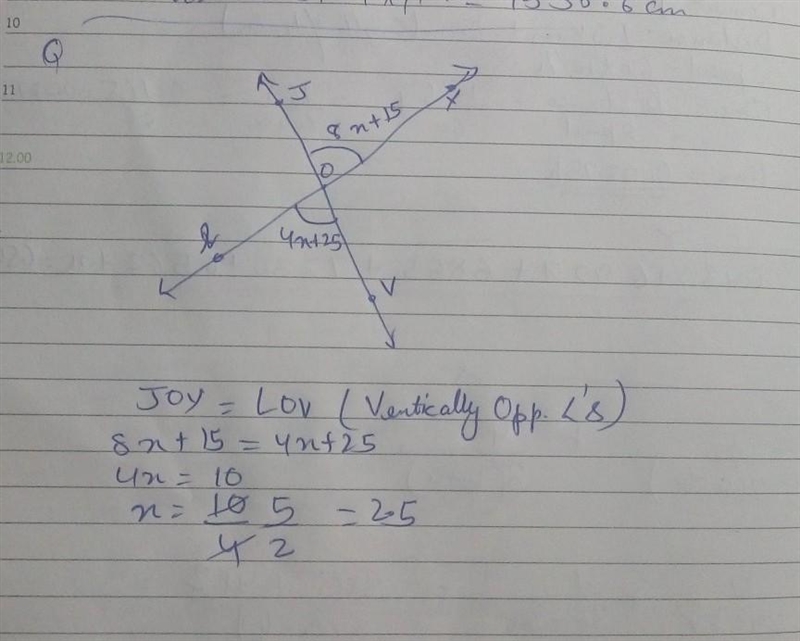 = 1330.6 cm
10
Q
11
J
8x+15
Y
12.00
O
4x+25
L
V
JOY = LOV (Vertically Opp. <'s)
8x+15 = 4x+25
4x = 10
x = 10/4 5/2 = 2.5